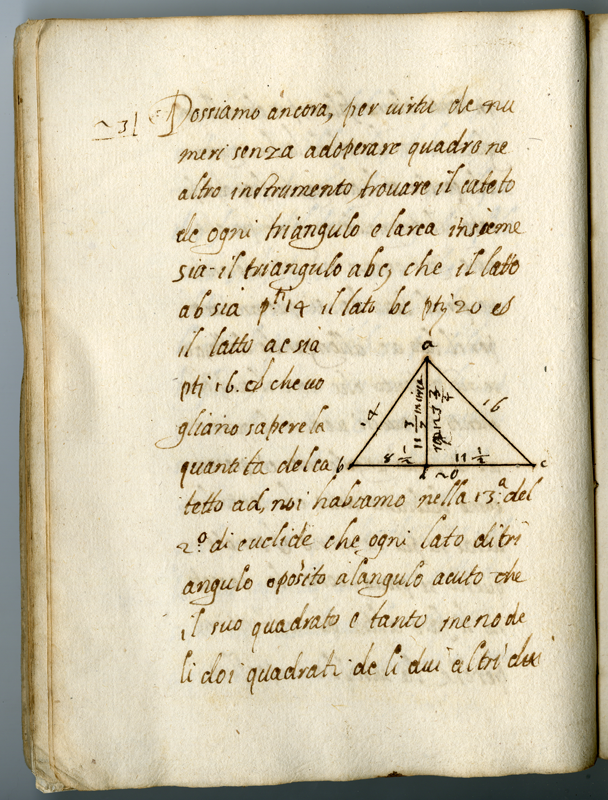 Possiamo ancora, per virtu de nu
meri senza adoperare quadro ne
altro instrumento trouare il cateto
de ogni triangulo e larea insieme
sia il triangulo abc, che il latto
ab sia pti 14 il lato bc ptj 20 et
il latto ac sia
ptj 16. et che uo
gliano sapere la
quantita del ca
tetto ad, noi habiamo nella 13.a del
2.o di euclide che ogni lato di tri
angulo oposito alangulo acuto che
il suo quadrato e tanto meno de
li doi quadrati de li dui altri dui
a
14
16
11 1/7 in circa
b
8 1/2
11 1/2
c
20